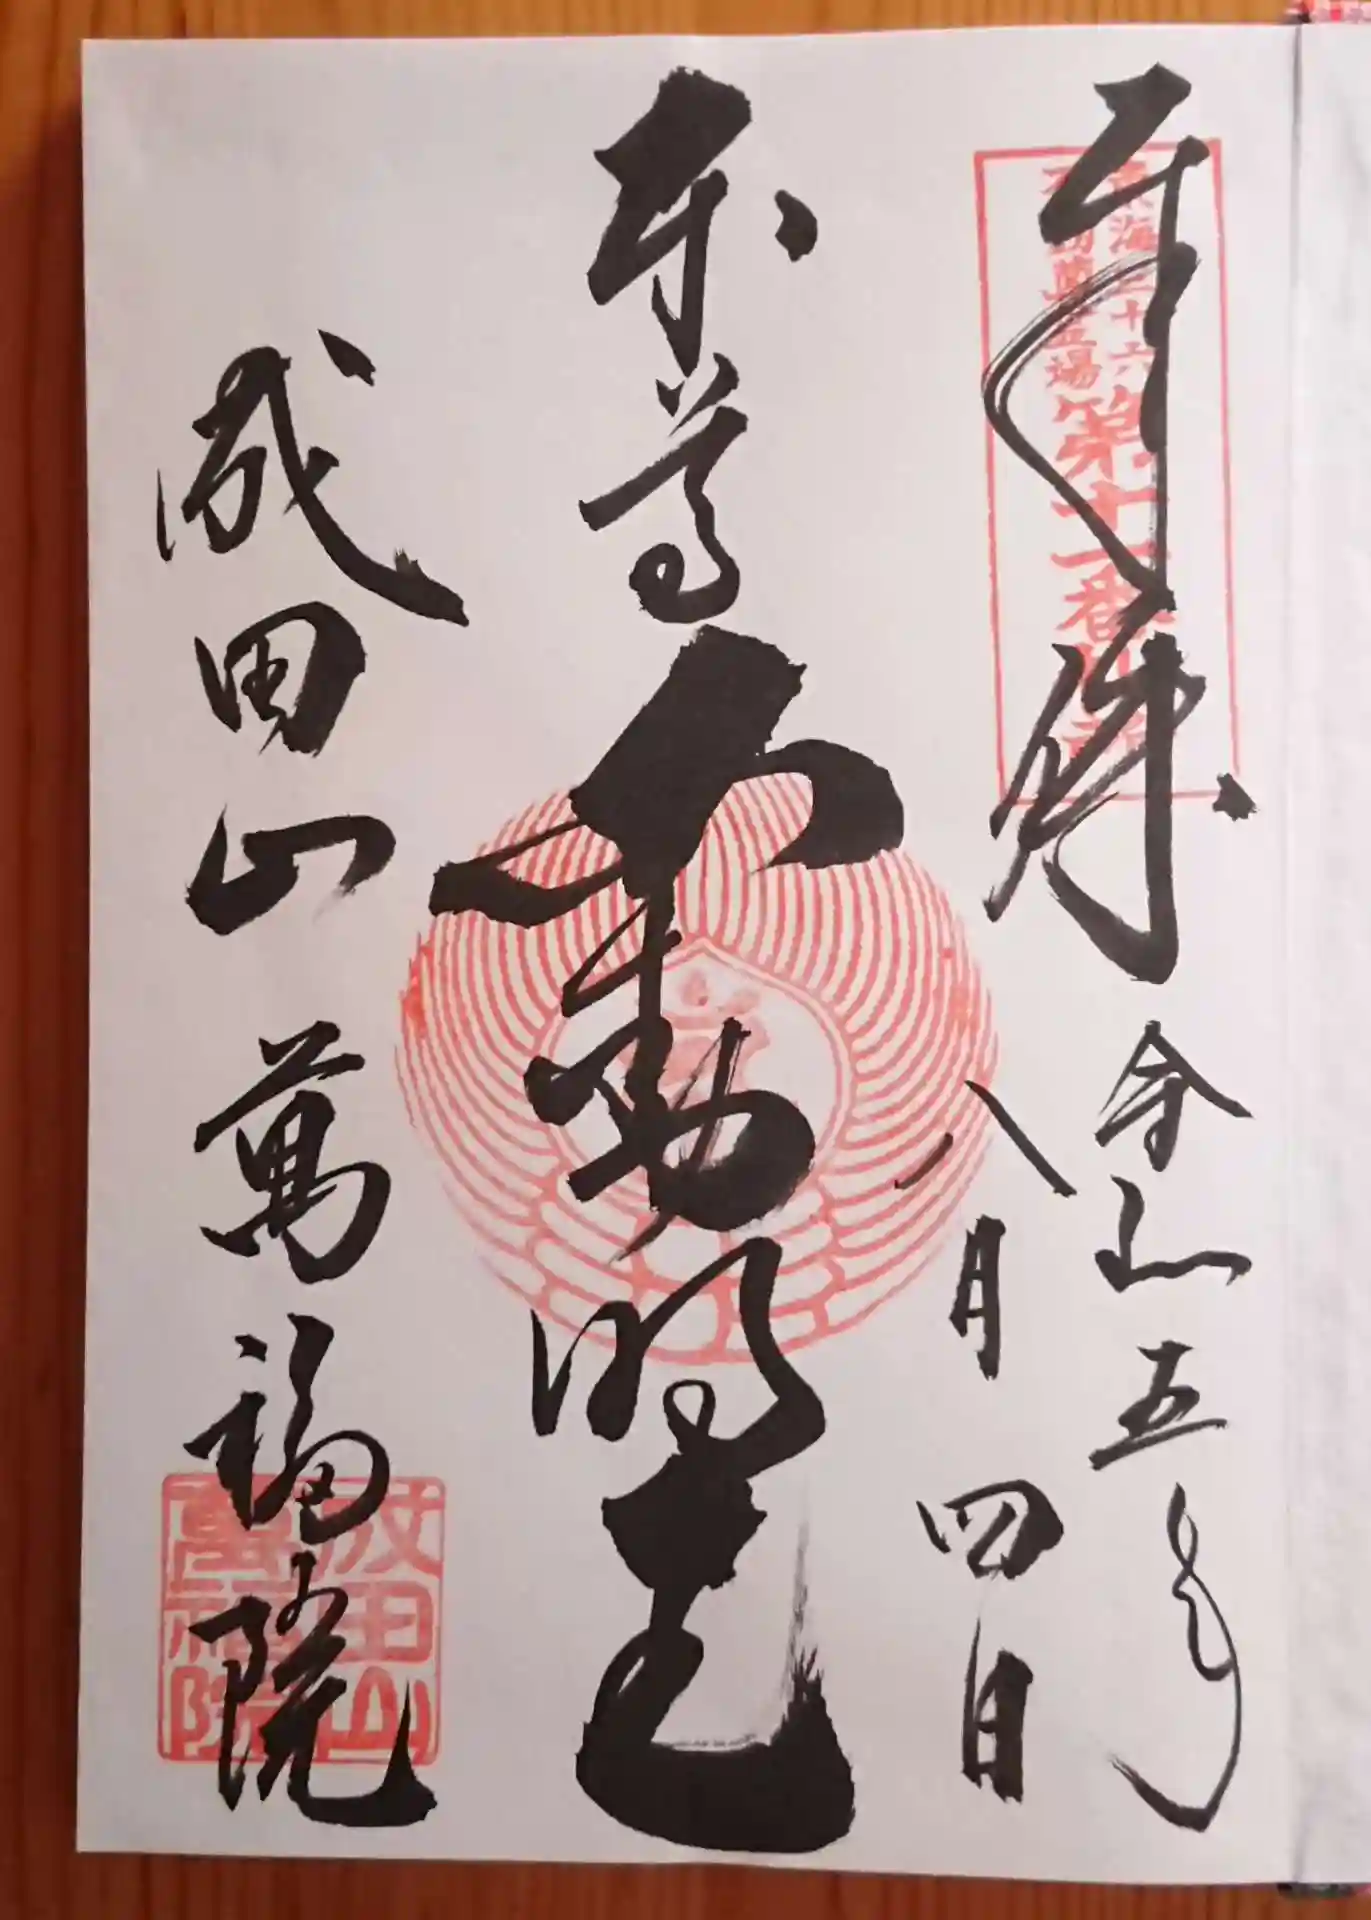 奉拝
東海三十六
不動尊霊場
第十一番札所
令和五年
八月四日
本尊不動明王
成田山萬福院
成田山
萬福院